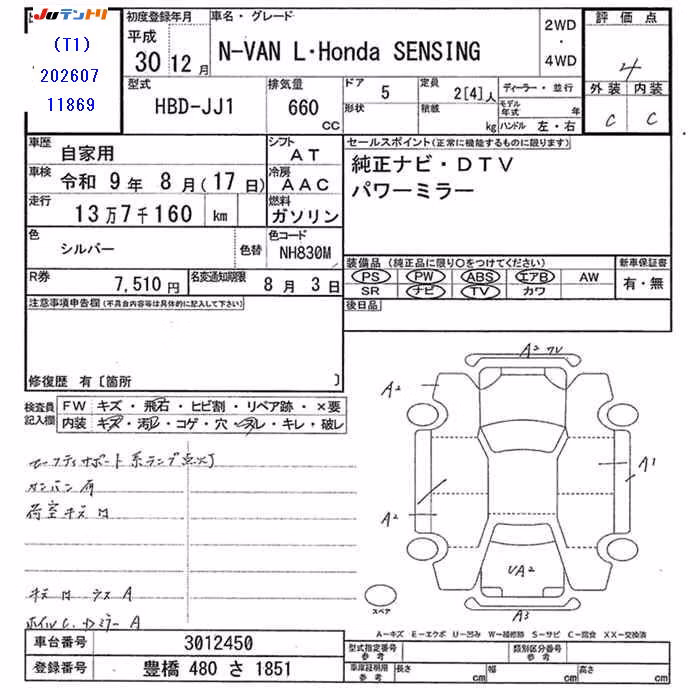 JUテントリ
(T1)
202607
11869
初度登録年月
平成
30 12 月
車名・グレード
N-VAN L・Honda SENSING
2WD
・
4WD
評価点
4
外装 内装
C C
型式
HBD-JJ1
排気量
660
CC
ドア 5
形状
定員 2[4]人
積載 kg
ディーラー・並行
モデル年式 年
ハンドル 左・右
車歴 自家用
車検 令和 9年 8月(17日)
走行 13万7千160 km
シフト AT
冷房 AAC
燃料 ガソリン
色 シルバー
色替
色コード NH830M
R券 7,510円
名変通知期限 8月 3日
セールスポイント(正常に機能するものに限ります)
純正ナビ・DTV
パワーミラー
装備品(純正品に限り○をつけてください)
PS PW ABS エアB AW
SR ナビ TV カワ
新車保証書
有・無
後日品
注意事項申告欄(不具合内容等は具体的に記入して下さい)
修復歴 有〔箇所 〕
検査員記入欄
FW キズ・飛石・ヒビ割・リペア跡・×要
内装 キズ・汚れ・コゲ・穴・スレ・キレ・破レ
セーフティサポート系ランプ点灯
カンバン有
荷室キズ
A2
A2
A1
A2
VA2
A3
スペア
A-キズ E-エクボ U-凹み W-補修跡 S-サビ C-腐食 XX-交換済
車台番号 3012450
登録番号 豊橋 480 さ 1851
型式指定番号 参考
類別区分番号 参考
車庫証明用 参考
長さ cm
幅 cm
高さ cm